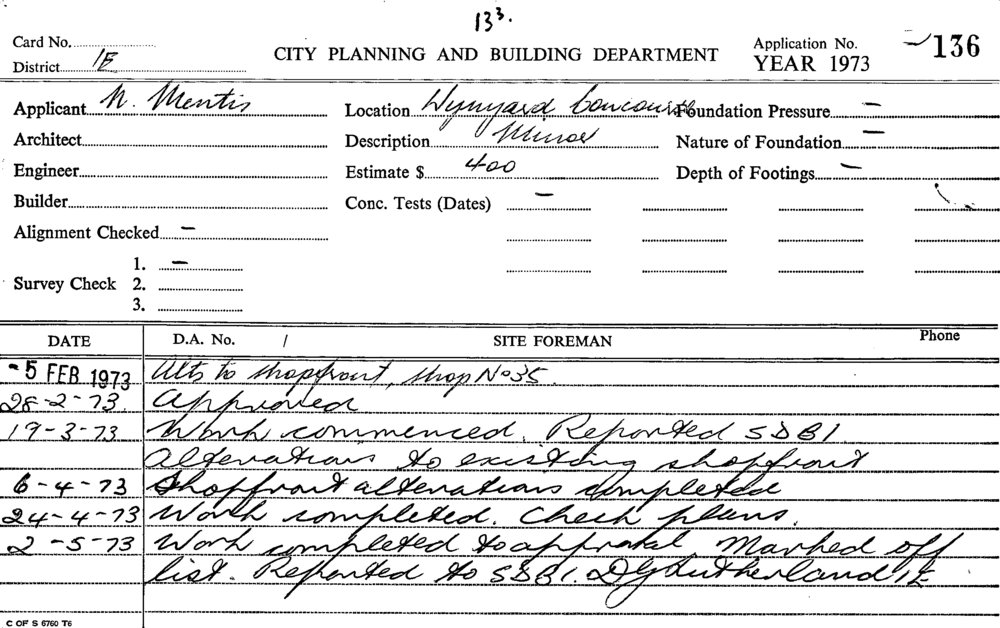 13³.
Card No.
District 1E
CITY PLANNING AND BUILDING DEPARTMENT
Application No. 136
YEAR 1973
Applicant N. Mentis
Location Wynyard Concourse
Foundation Pressure —
Architect
Description Minor
Nature of Foundation —
Engineer
Estimate $ 400
Depth of Footings —
Builder
Conc. Tests (Dates) —
Alignment Checked —
Survey Check
1. —
2.
3.
DATE D.A. No. / SITE FOREMAN Phone
-5 FEB 1973 Alts to shopfront, shop No 35.
28-2-73. Approved
19-3-73 Work commenced. Reported SDBI
alterations to existing shopfront
6-4-73 Shopfront alterations completed
24-4-73 Work completed. Check plans.
2-5-73 Work completed to approval. Marked off
list. Reported to SDBI. DG Sutherland 1E
C OF S 6760 T6